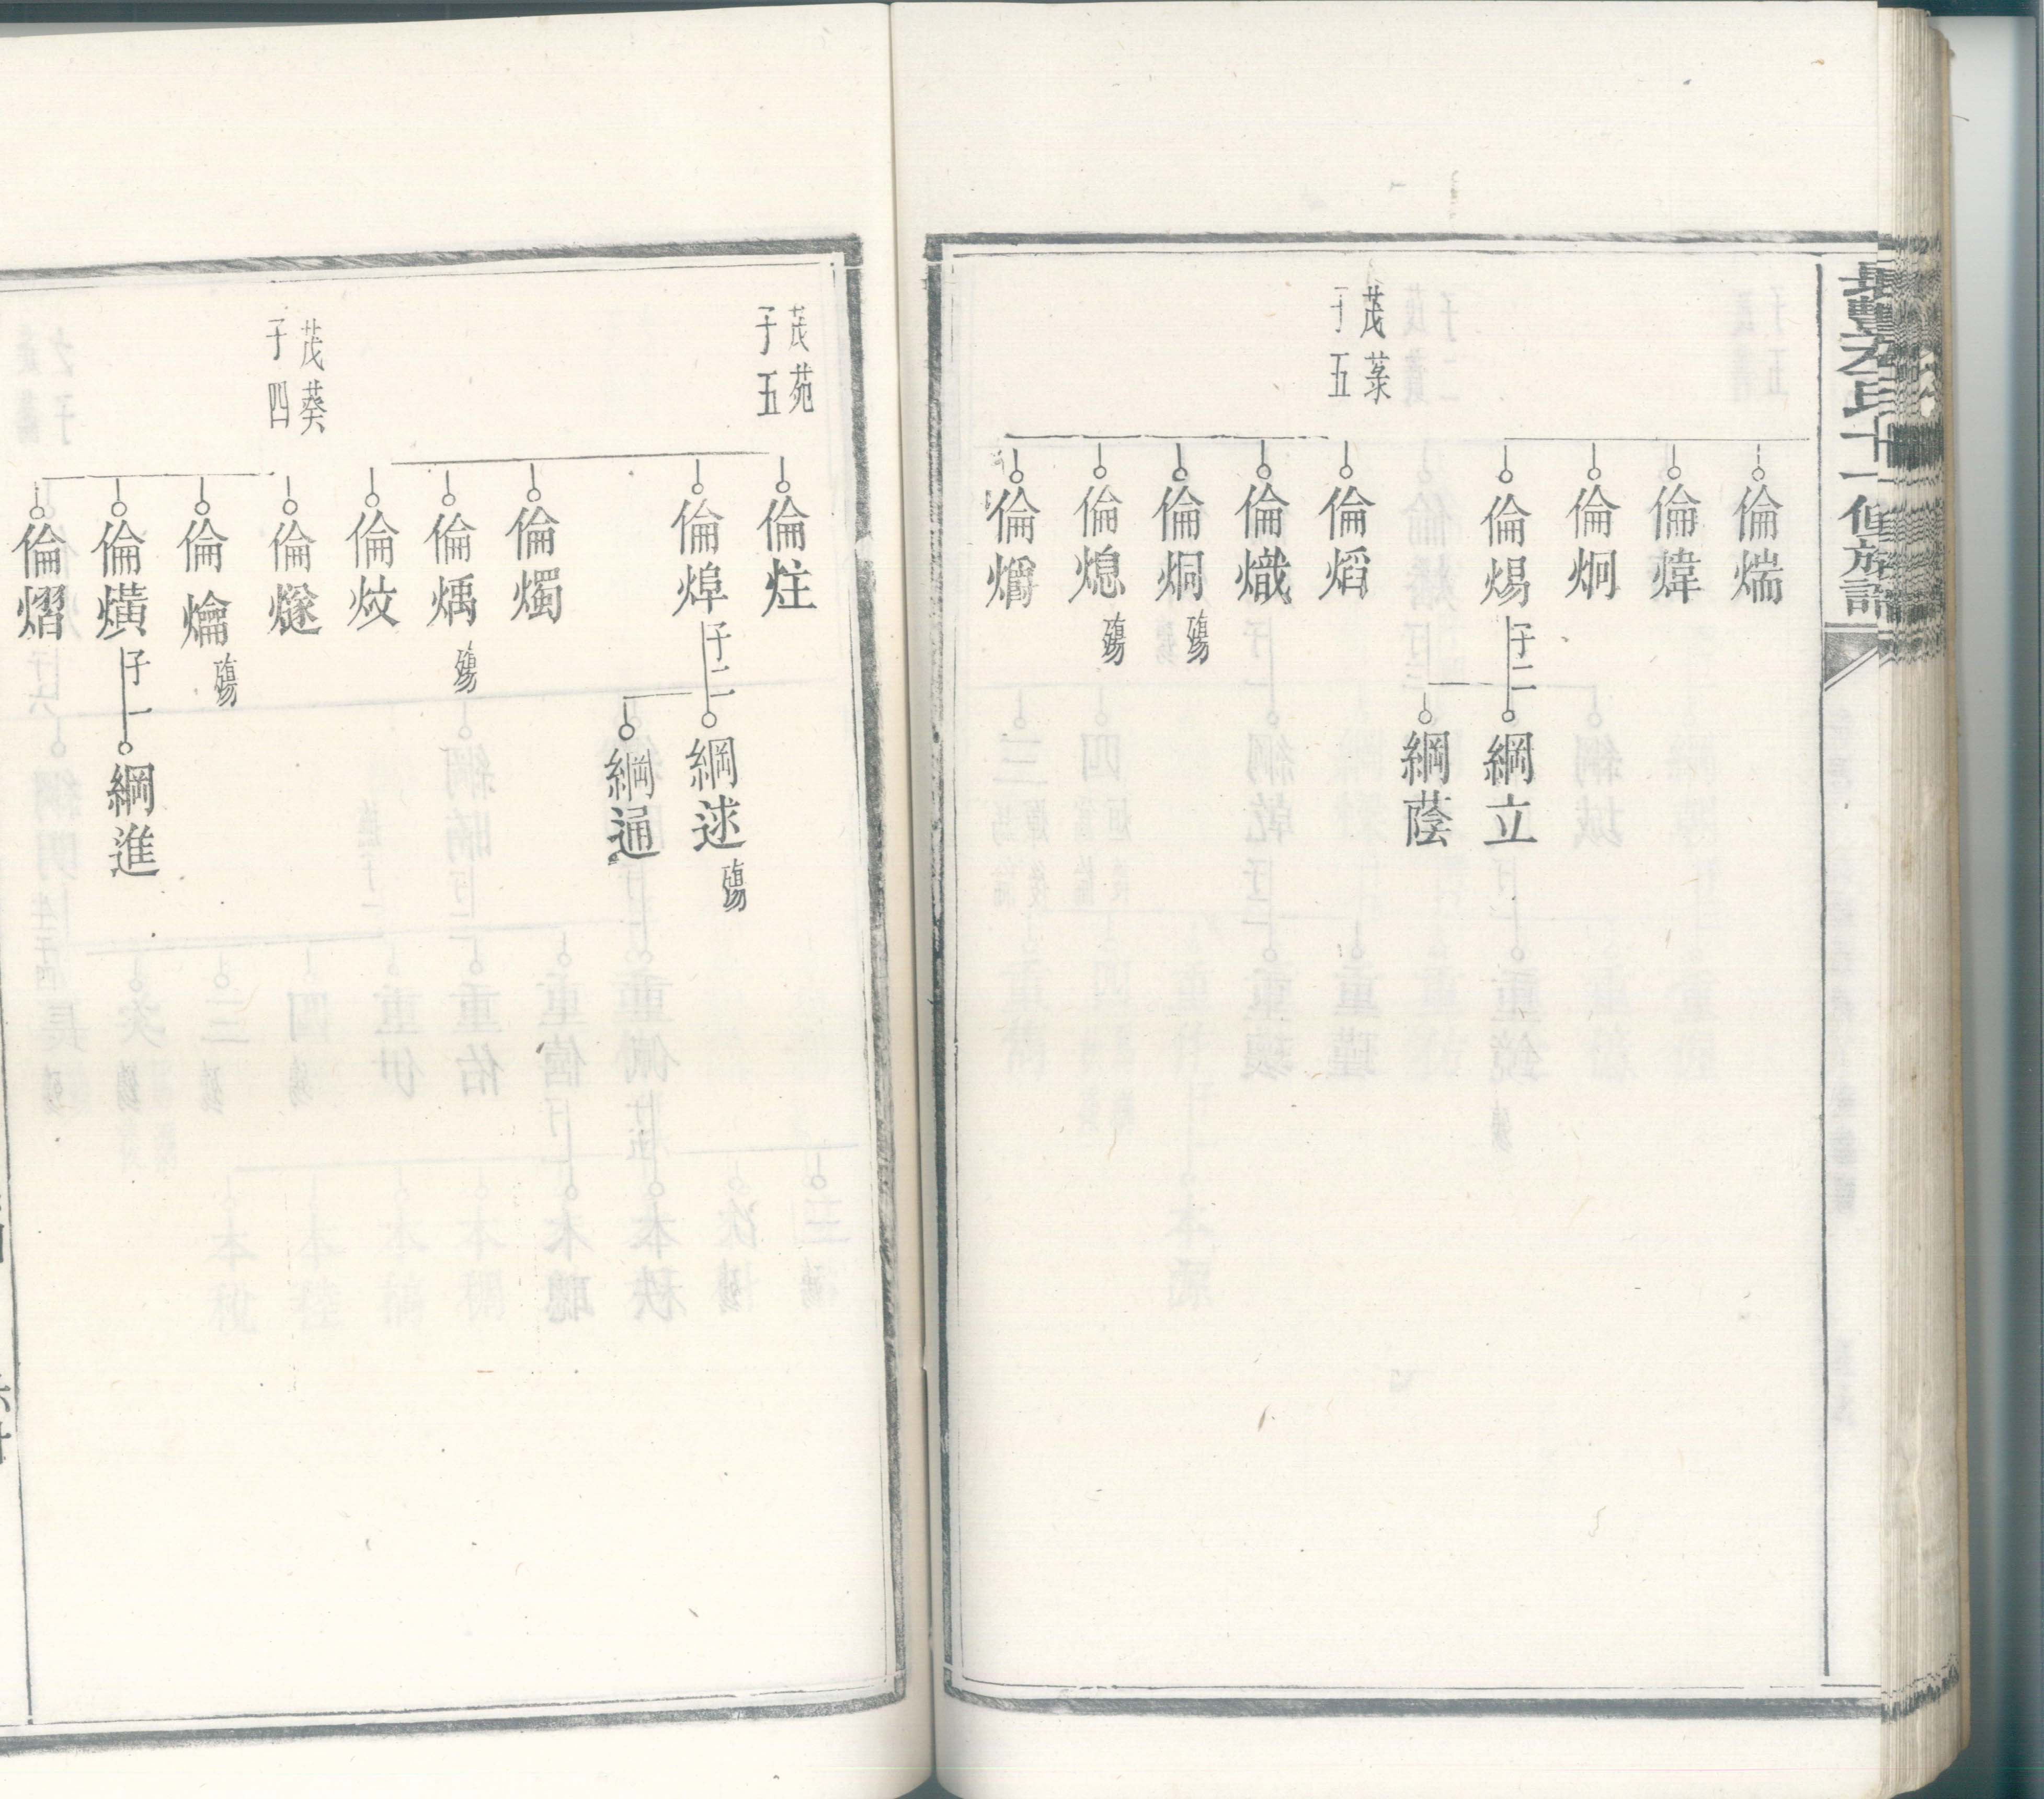 倫煓
倫煒
倫炯
倫焬 子二
綱立
綱蔭
茂菉
子五
倫熖
倫熾
倫烔 殤
倫熄 殤
倫爝
茂苑
子五
倫炷
倫焊 子二
綱逑 殤
綱通
倫燭
倫煱 殤
倫炆
茂葵
子四
倫燧
倫爚 殤
倫熿 子一
綱進
倫熠